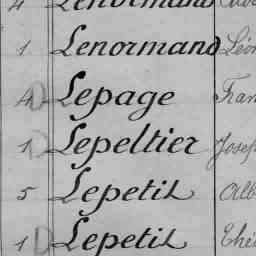 4 Lenormand
1 Lenormand Léon
4 D Lepage Fran
1 D Lepeltier Josep
5 Lepetit Alb
1 D Lepetit Thé